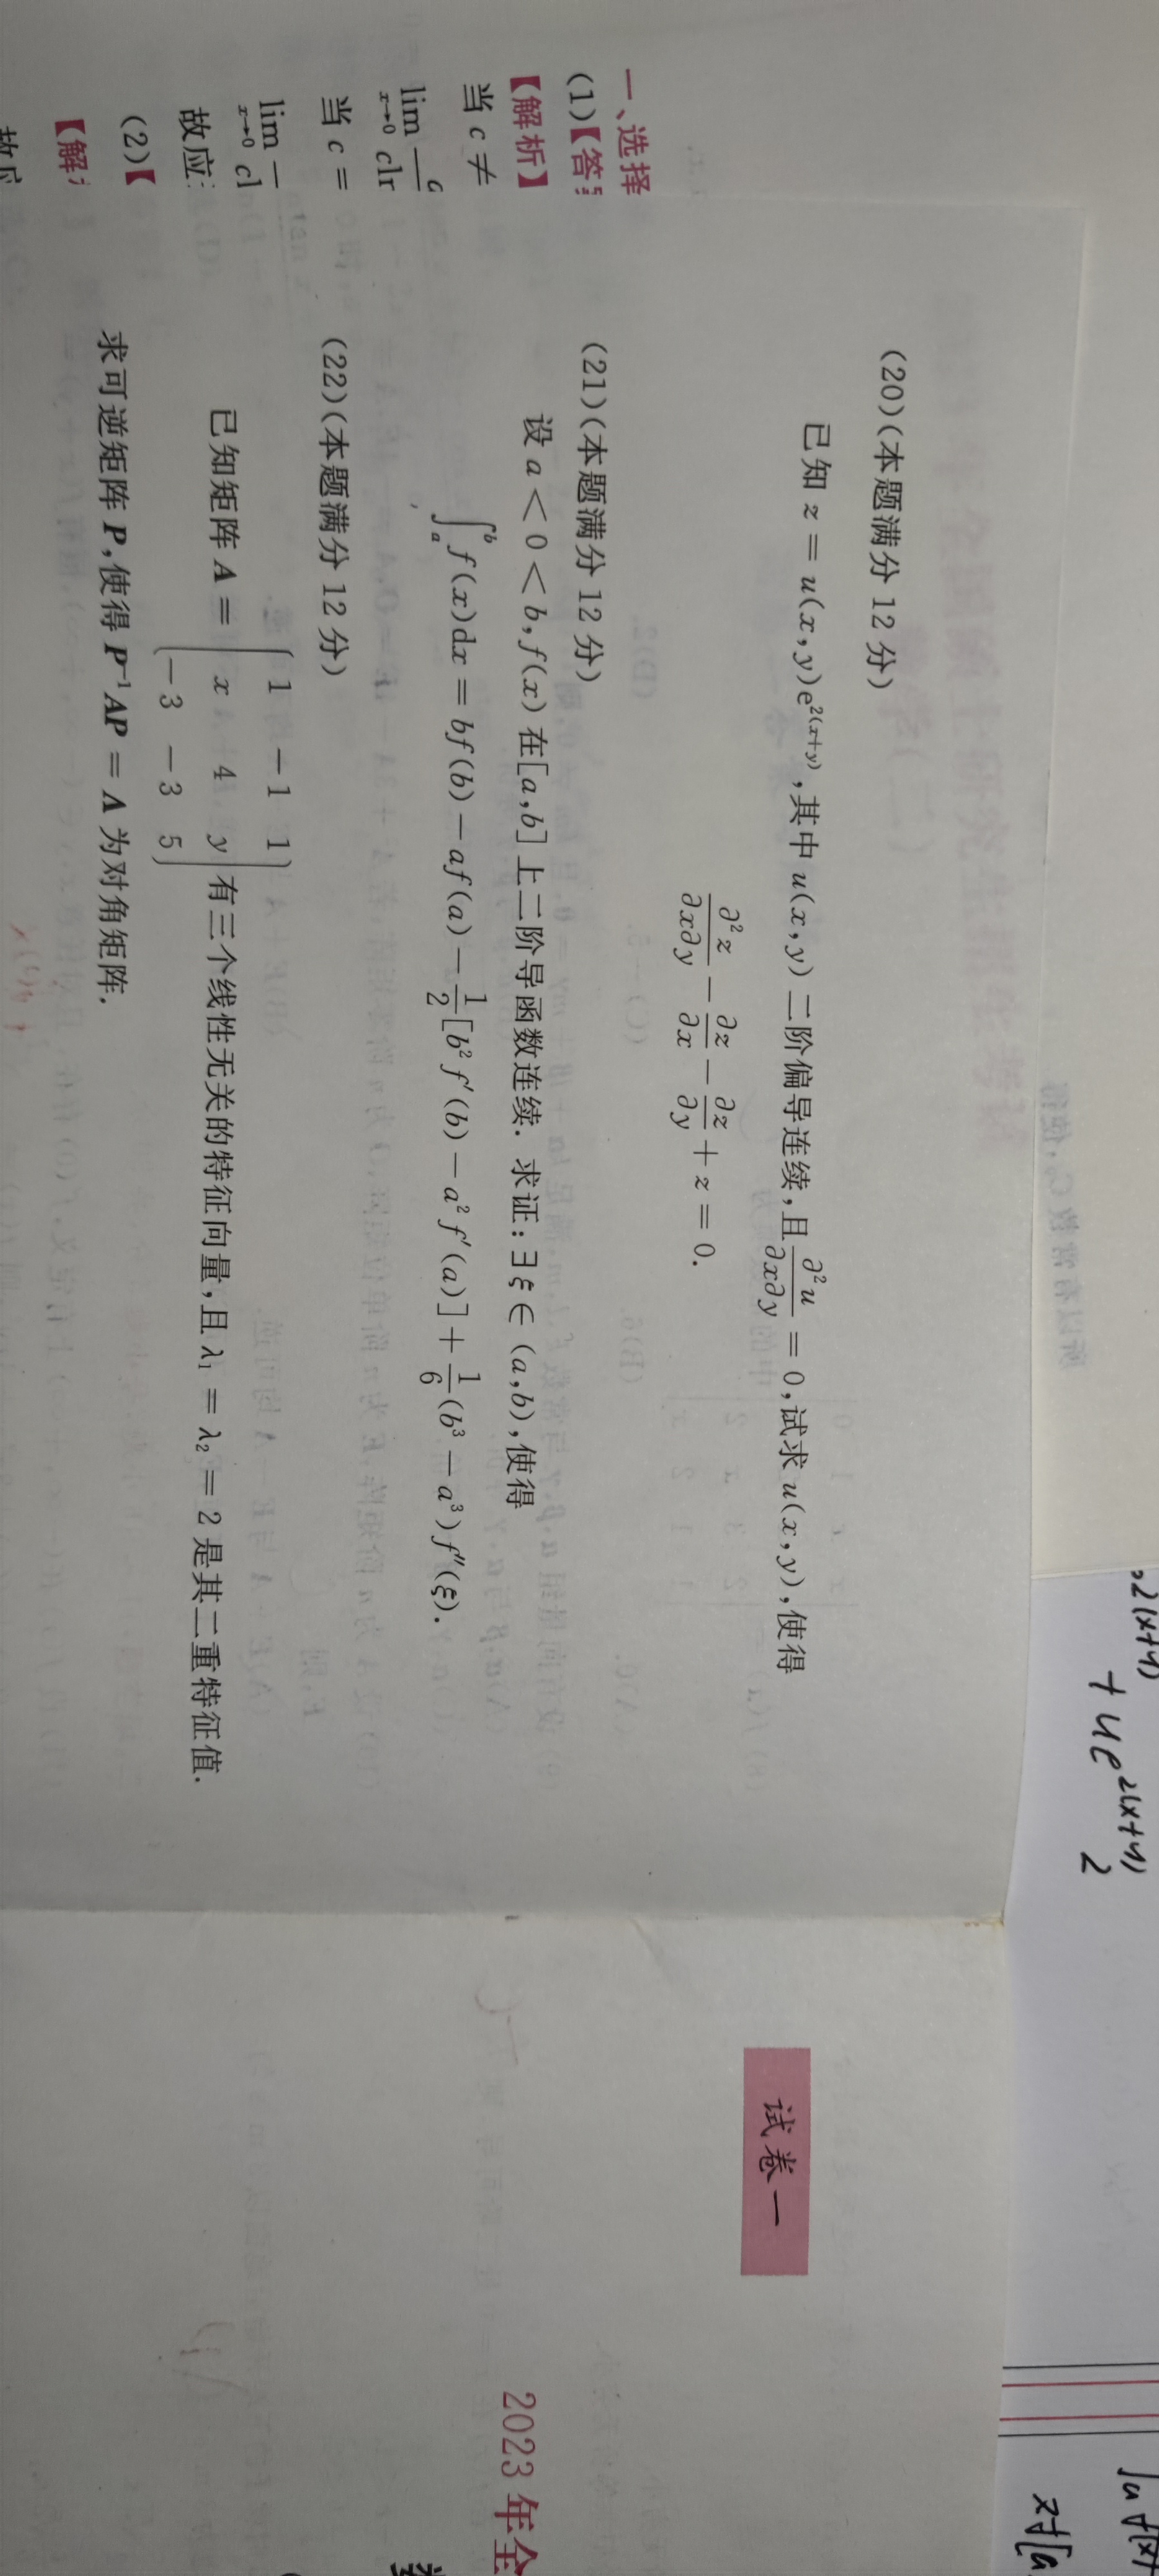 (20)(本题满分 12 分)
已知 z = u(x,y)e^{2(x+y)},其中 u(x,y) 二阶偏导连续,且 ∂²u/∂x∂y = 0,试求 u(x,y),使得
∂²z/∂x∂y − ∂z/∂x − ∂z/∂y + z = 0.
(21)(本题满分 12 分)
设 a < 0 < b,f(x) 在[a,b]上二阶导函数连续. 求证:∃ξ ∈ (a,b),使得
∫_a^b f(x)dx = bf(b) − af(a) − 1/2[b²f′(b) − a²f′(a)] + 1/6(b³ − a³)f″(ξ).
(22)(本题满分 12 分)
已知矩阵 A = (1 −1 1; x 4 y; −3 −3 5) 有三个线性无关的特征向量,且 λ₁ = λ₂ = 2 是其二重特征值.
求可逆矩阵 P,使得 P⁻¹AP = Λ 为对角矩阵.
一、选择
(1)【答
【解析】
当 c ≠
lim
x→0
当 c =
lim
x→0
故应
(2)【
【解
试卷一
2023 年全
2(x+y)
+ ue^{2(x+y)} 2